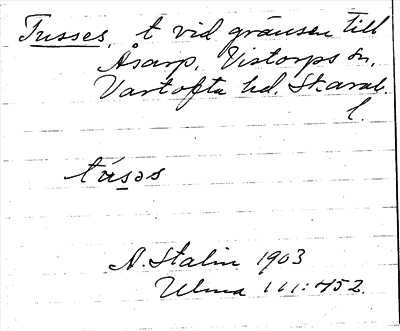 Tusses, t vid gränsen till
Åsarp, Vistorps sn,
Vartofta hd. Skarab.
l.
tusəs
A. Stalin 1903
Ulma 111:452.